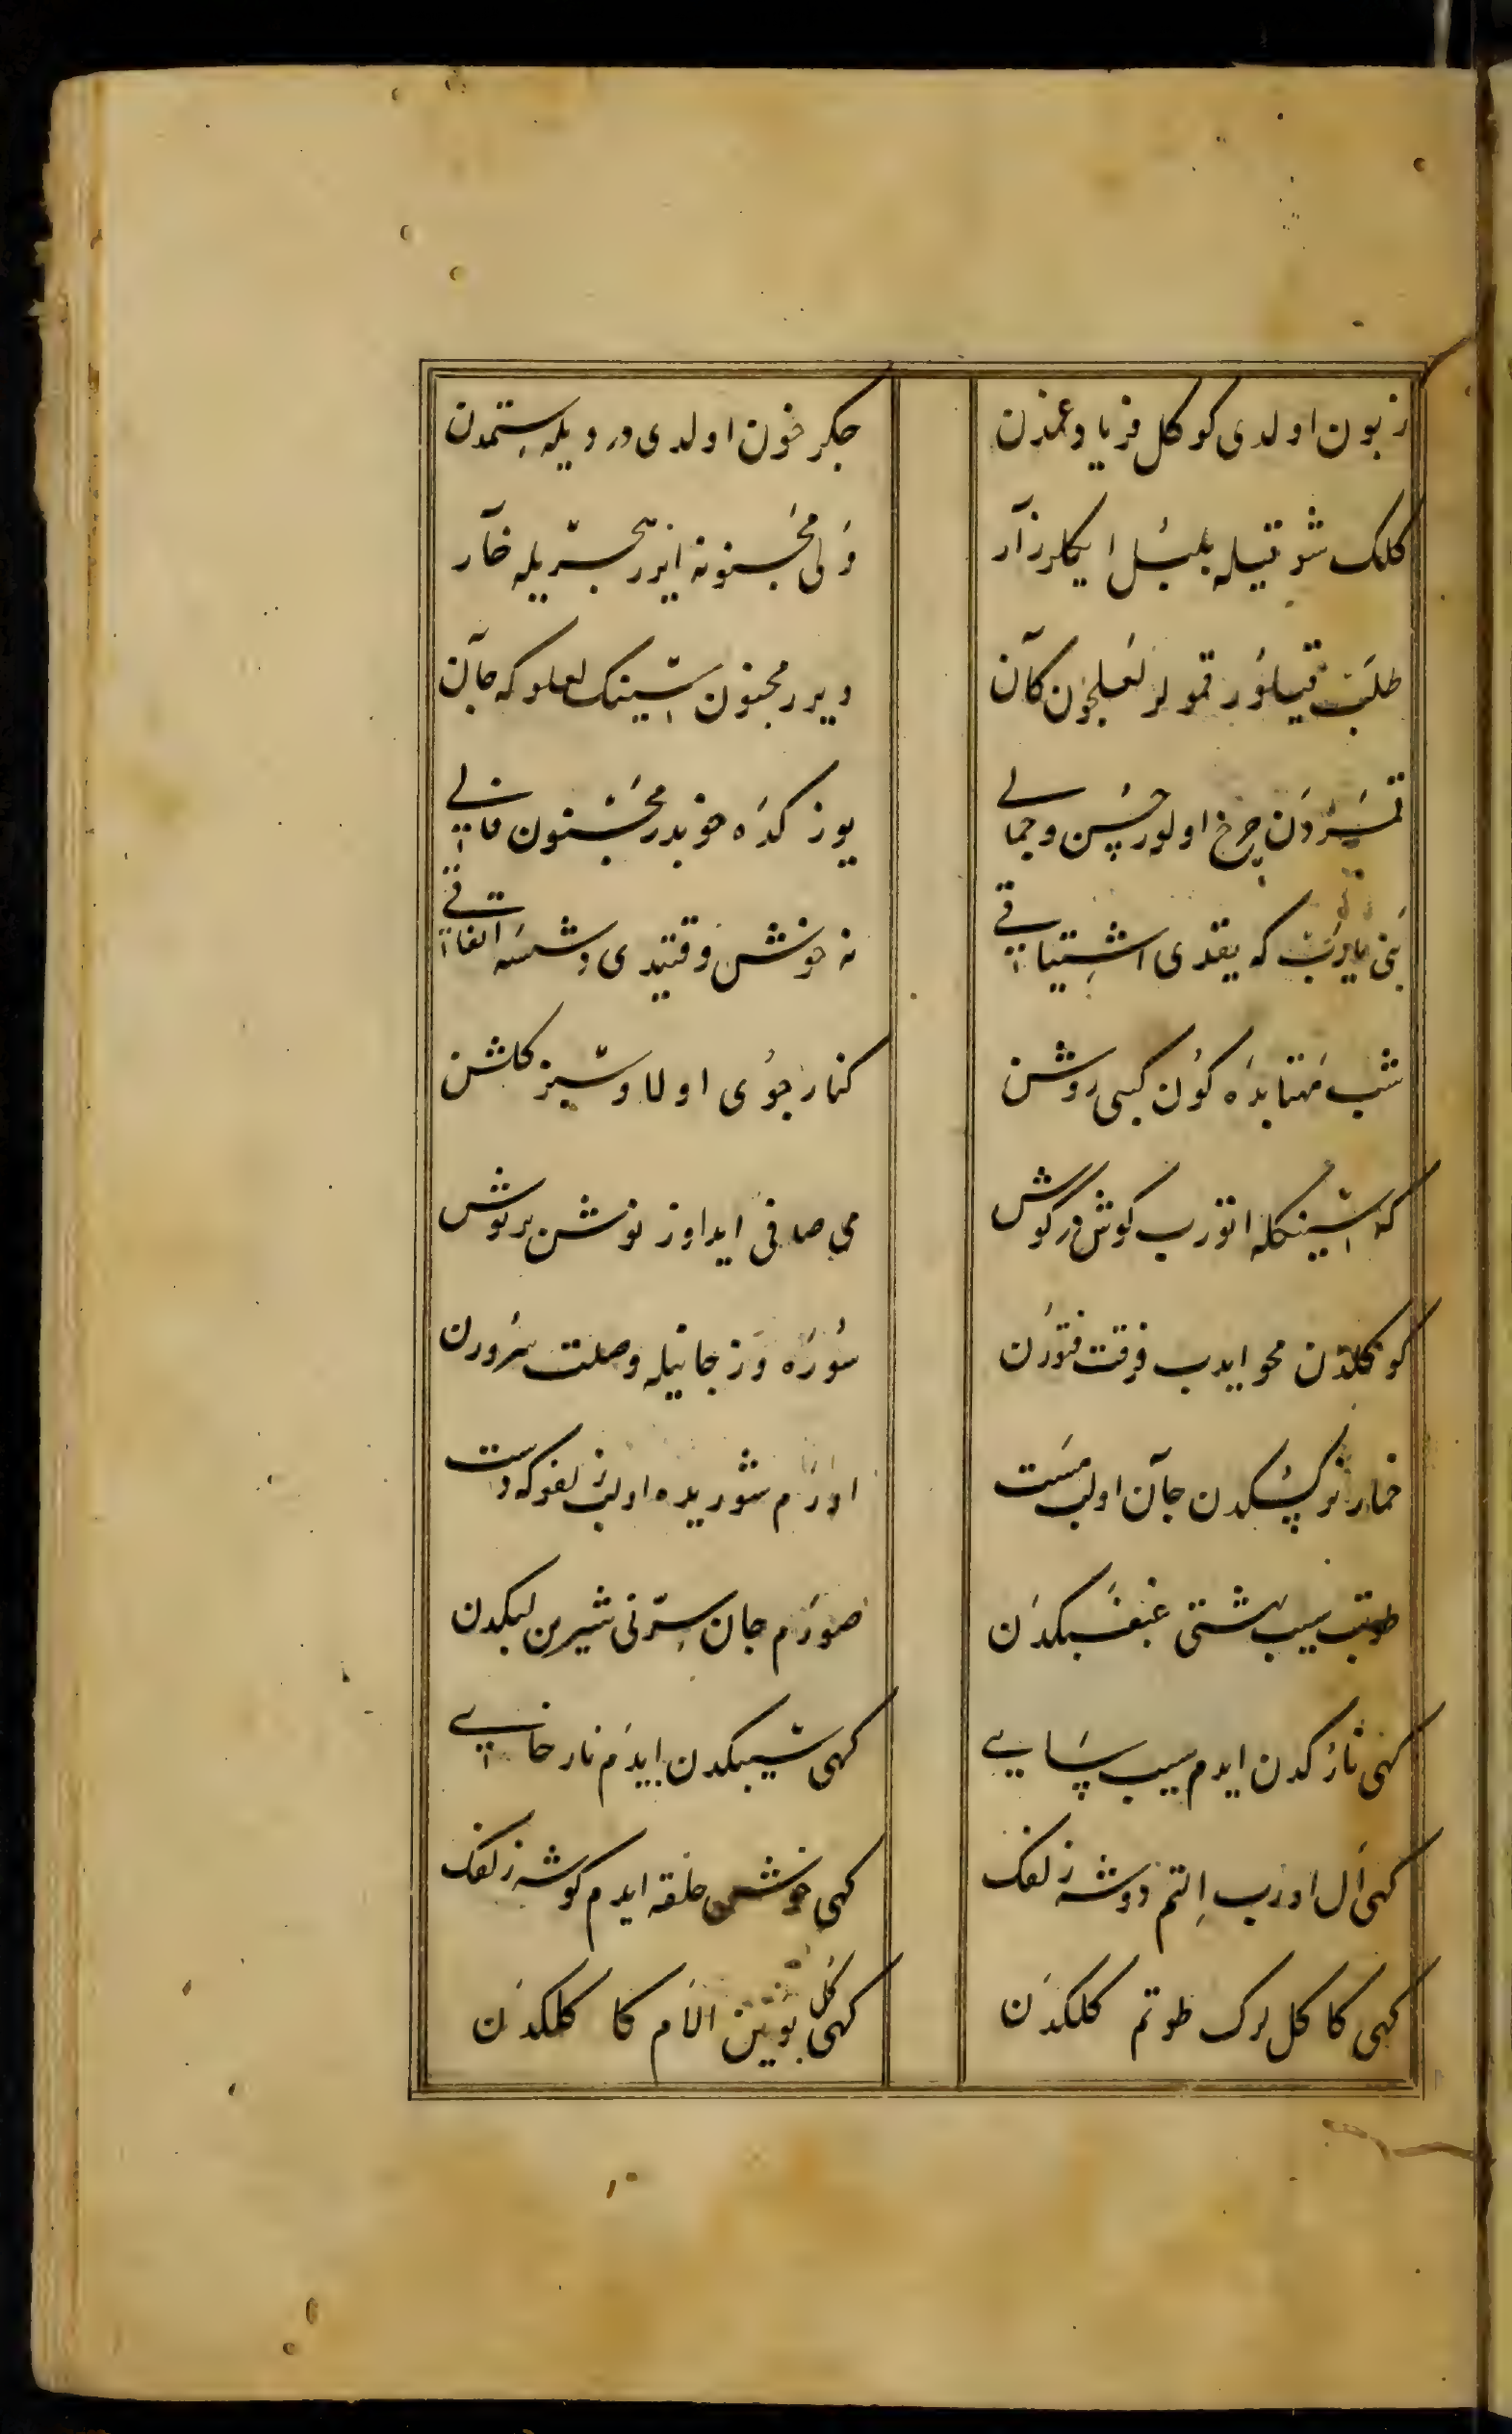 زبون اولدی کوکل فریاد و غمدن
جکر خون اولدی درد یله ستمدن
کلک شوقیله بلبل ایکلر زآر
ولی مجنونه ایرر تجسریله خآر
طلب قیلور قمولر لعلیچون کآن
ویرر مجنون اشینک لعلوکه جآن
قمردن چرخ اولور حسن و جمالی
یوز کده خو بدر مجنون
بنی یارب که یقدی اشتیاقی
نه خوش وقتیدی دوشسه اتفاقی
شب مهتابده کون کبی روشن
کنار جوی اولا و سبز کلشن
که اشینکله اتورب کوش در کوش
می صافی ایداوز نوش بر نوش
کوکلدن محو ایدب فرقت فتورن
سوره وز جانیله وصلت سرورن
خمار نرکسکدن جآن اولب مست
اورم شوریده اولب زلفوکه دست
طوتب سیب بهشتی غبغبکدن
صورم جان سرنی شیرین لبکدن
کهی نارکدن ایدم سیب سایی
کهی سیبکدن ایدم نار خایی
کهی ال اورب التم دوشه زلفک
کهی خوش حلقه ایدم کوشه زلفک
کهی کاکل لرک طوتم کلکدن
کهی کل بوین الام کاکلکدن